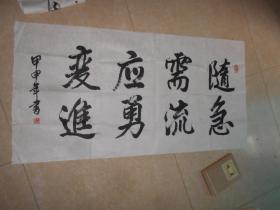 隨急
需流
应勇
変進
甲申年書